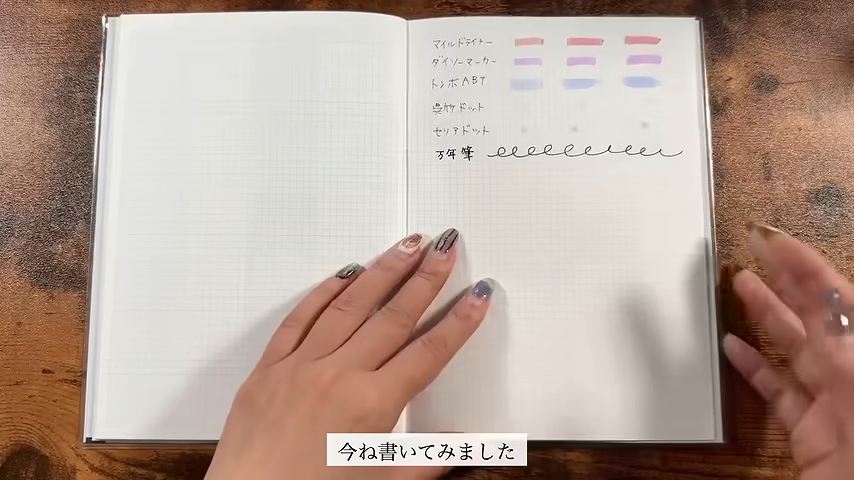 マイルドライナー
ダイソーマーカー
トンボABT
呉竹ドット
セリアドット
万年筆
今ね書いてみました